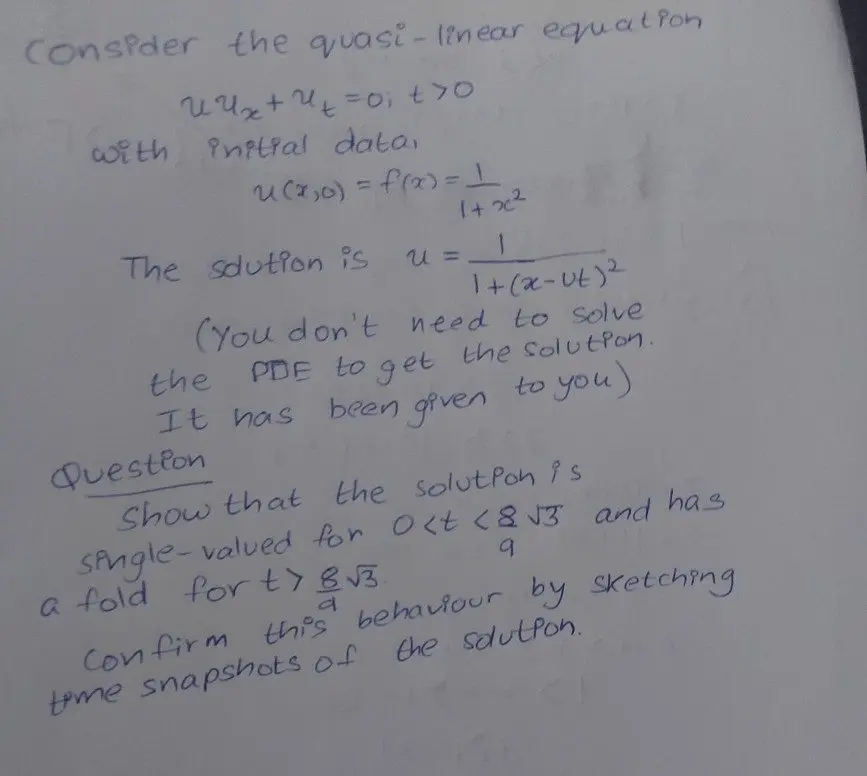 Consider the quasi-linear equation
uuₓ + uₜ = 0; t>0
with initial data,
u(x,0) = f(x) = 1/(1+x²)
The solution is u = 1/(1+(x-ut)²)
(You don't need to solve
the PDE to get the solution.
It has been given to you)
Question
Show that the solution is
single-valued for 0<t<8/9 √3 and has
a fold for t> 8/9 √3.
Confirm this behaviour by sketching
time snapshots of the solution.